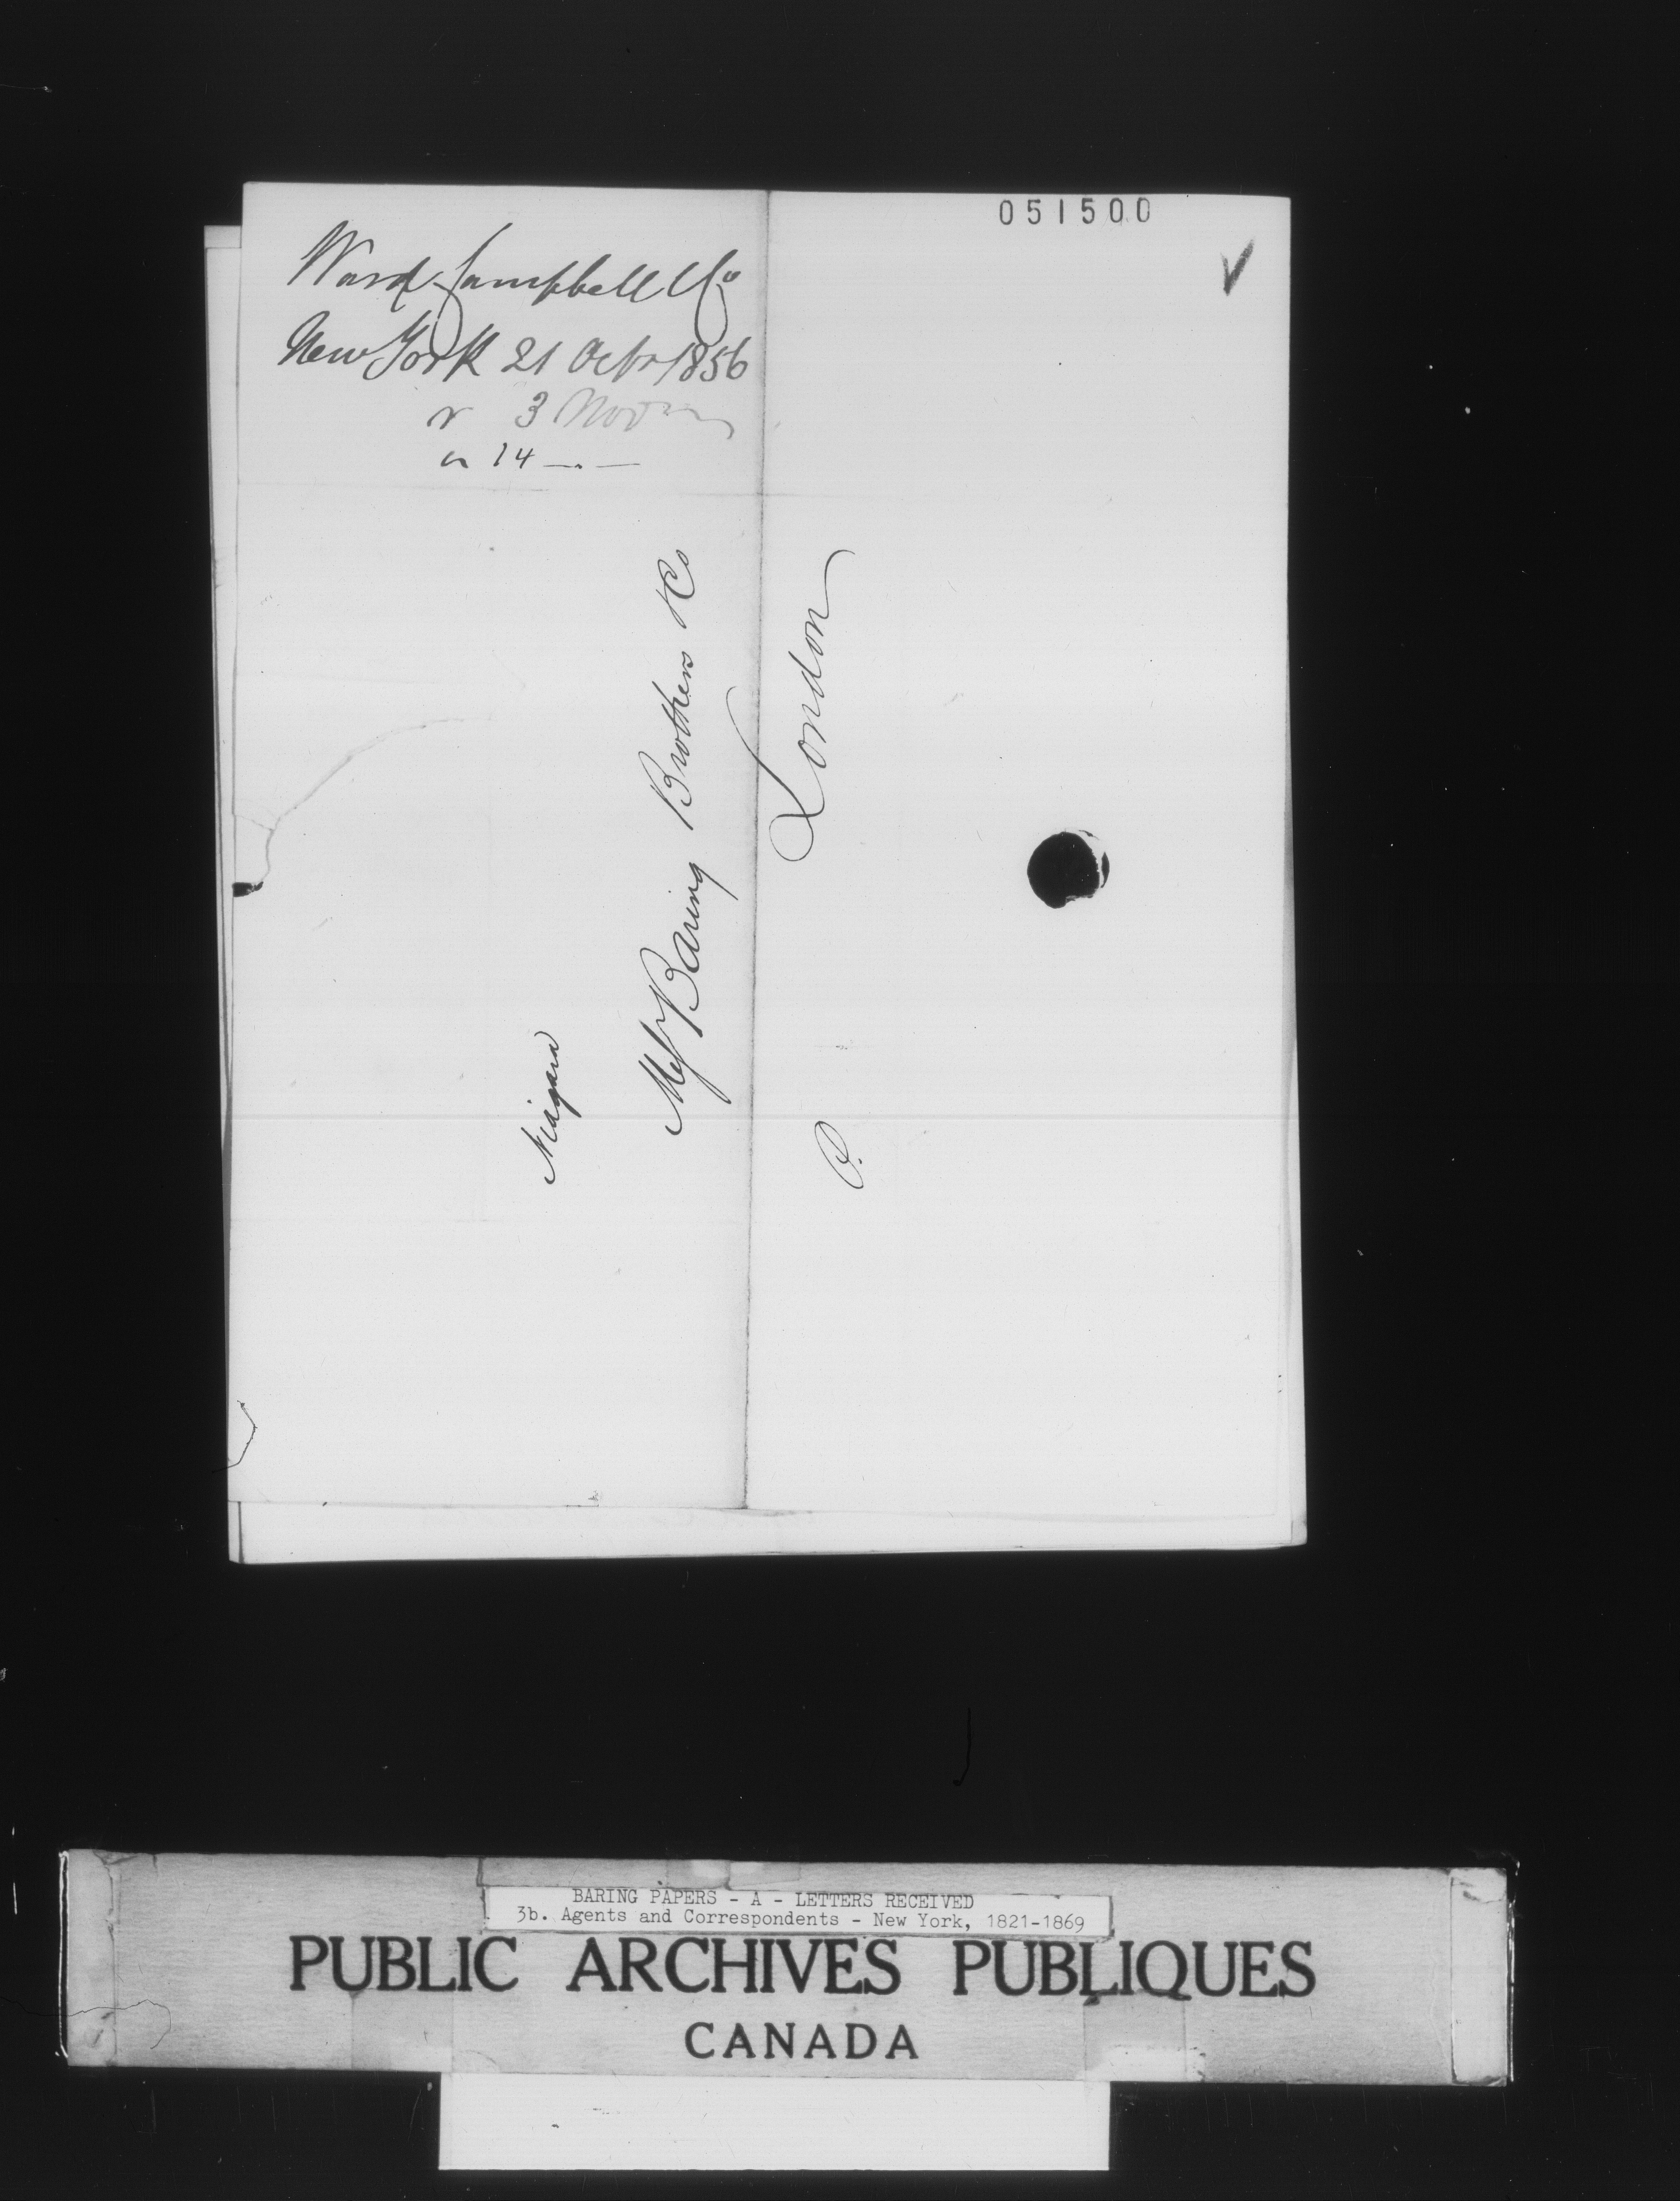 051500
Ward Campbell & Co
New York 21 Octr 1856
r 3 Nov
a 14 —.—
Niagara
Messrs Baring Brothers & Co
London
P.
BARING PAPERS - A - LETTERS RECEIVED
3b. Agents and Correspondents - New York, 1821-1869
PUBLIC ARCHIVES PUBLIQUES
CANADA